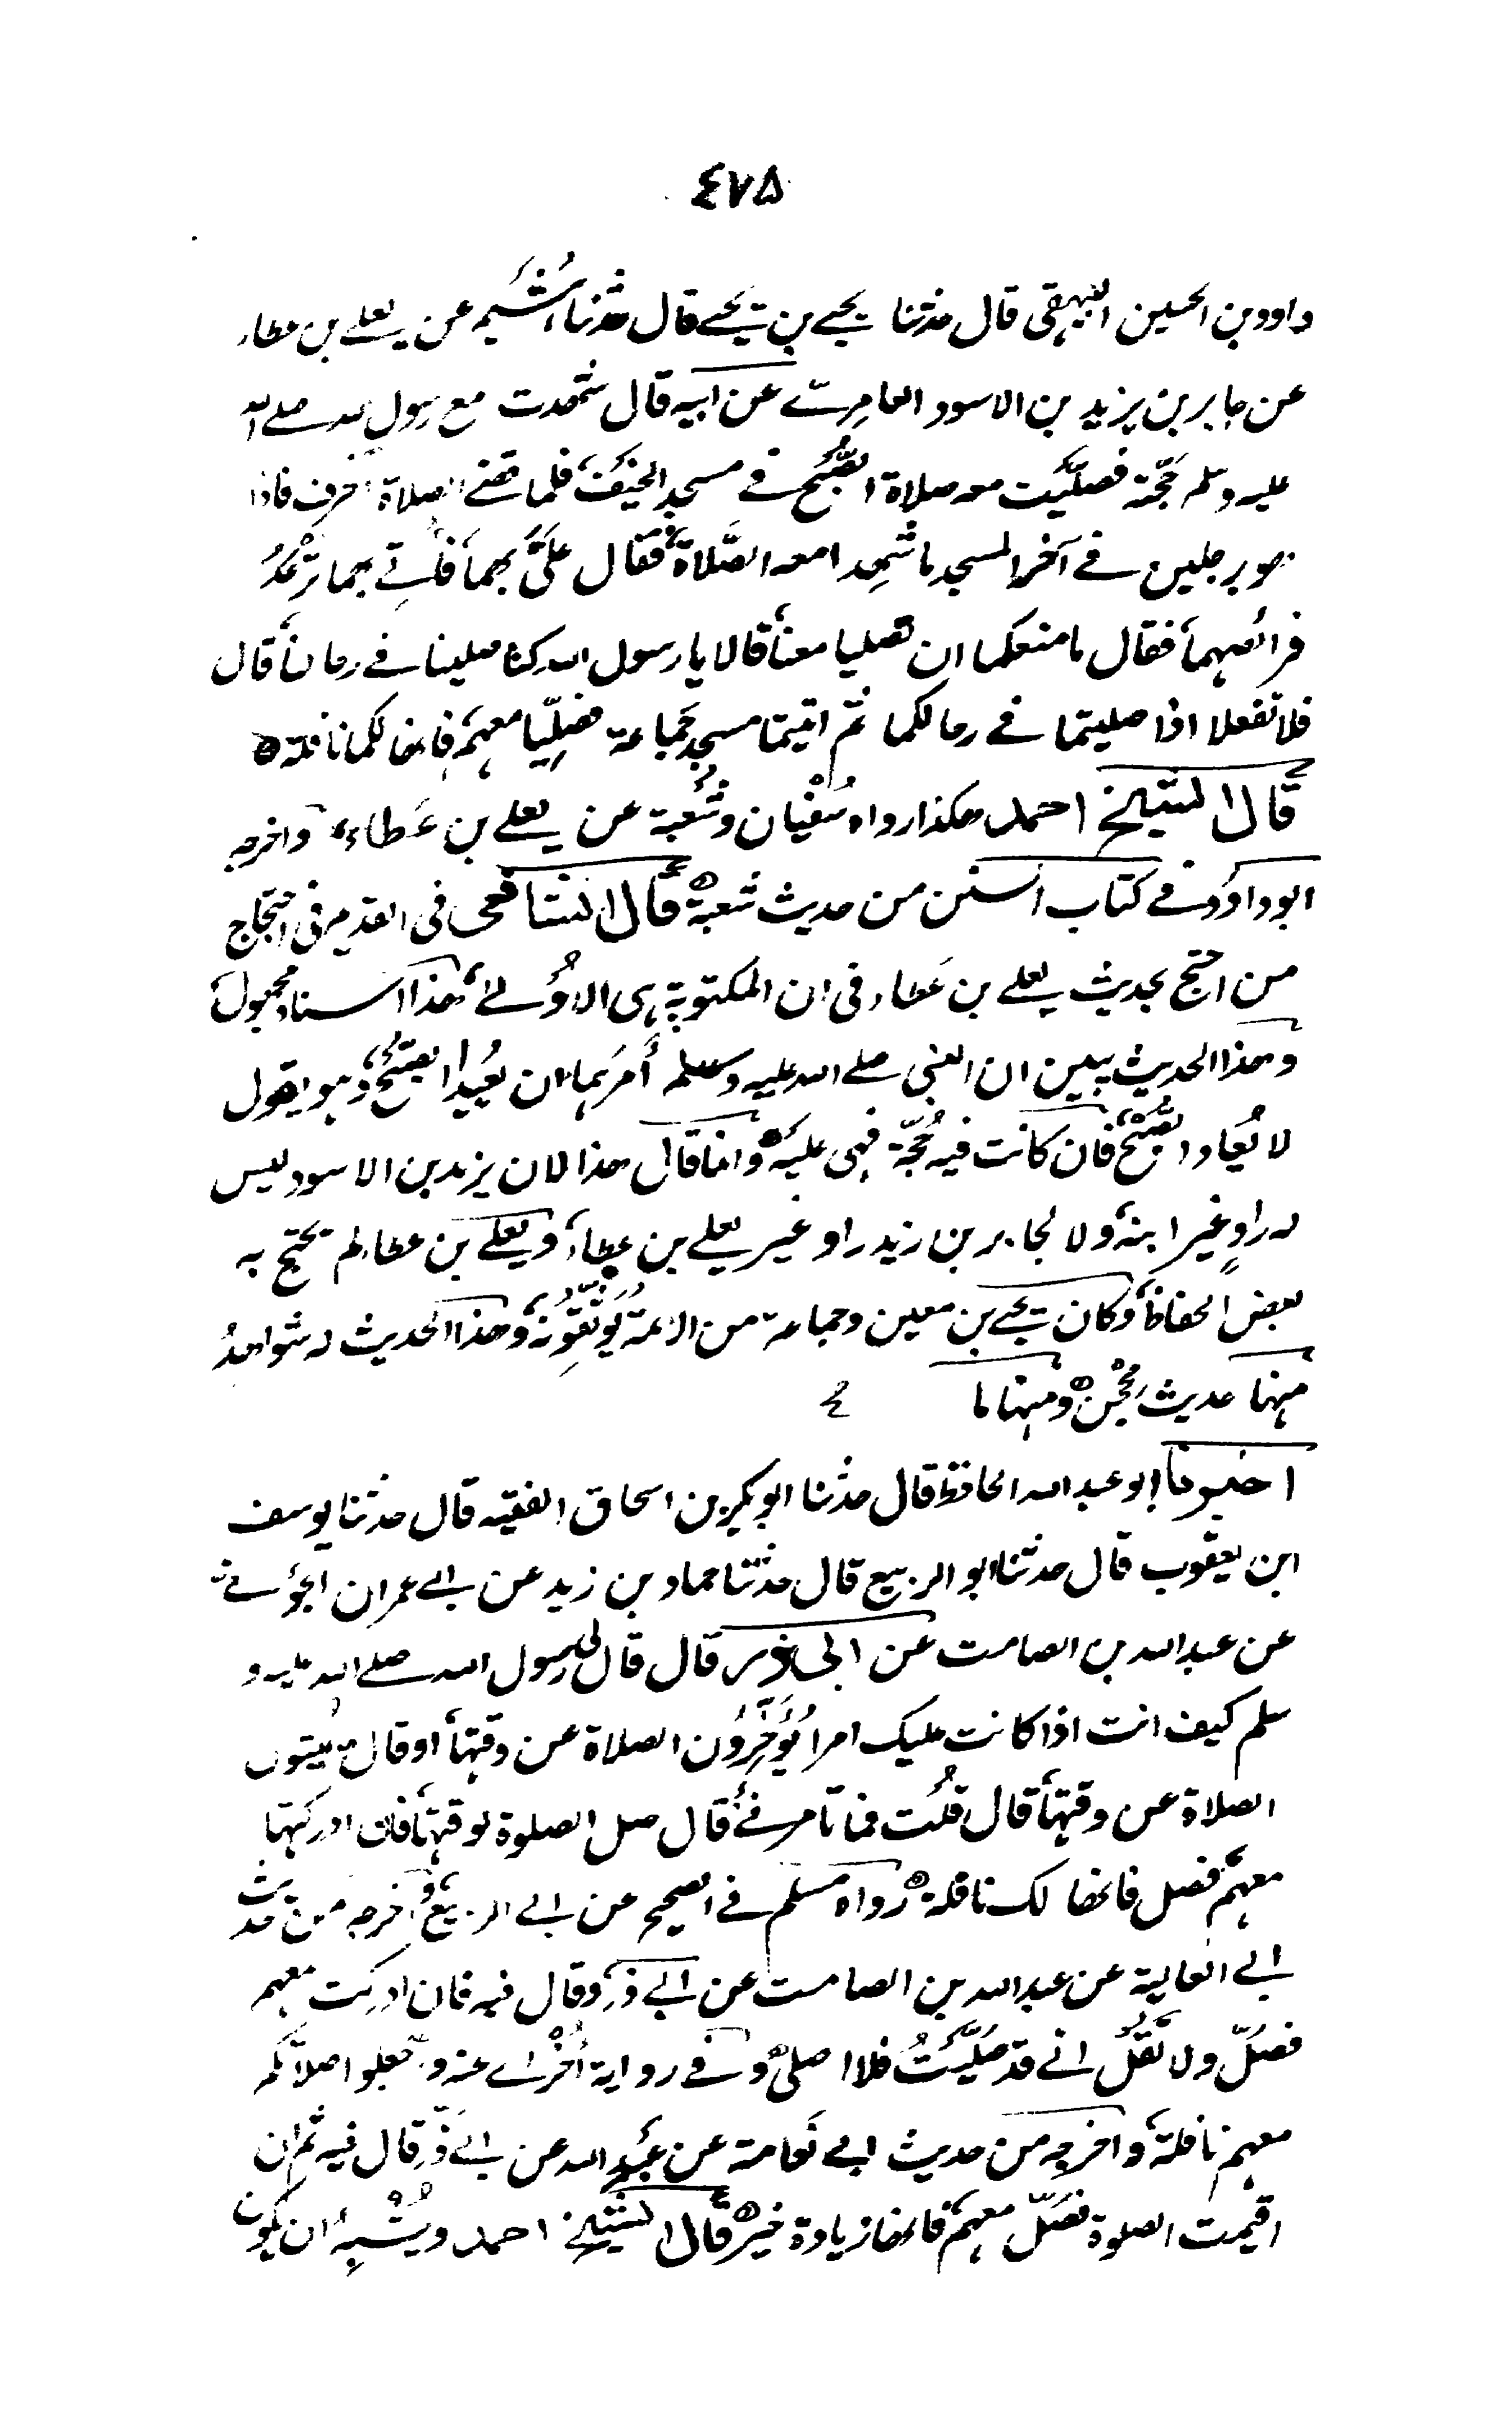 ٤٧٥
داود بن الحسين البيهقى قال حدثنا يحيے بن يحيے قال حدثنا هُشَيم عن يعلے بن عطاء
عن جابر بن يزيد بن الاسود العامِرىّ عن ابيه قال شهدت مع رسول الله صلے الله
عليه وسلم حَجّته فصلّيت معه صلاة الصُّبْح فے مسجد الخيف فلما قضے الصلاة انحرف فاذا
هو برجلين فے آخر المسجد لم يشهدا معه الصّلاة فقال عَلَىَّ بهما فاُتے بهما تَرْعَدُ
فرائصهما فقال ما منعكما ان تصليا معنا قالا يا رسول الله كنا صلينا فے رحالنا قال
فلا تفعلا اذا صليتما فے رحالكما ثم اتيتما مسجد جماعة فصلّيا معهم فانها لكما نافلة
قال الشيخ احمد هكذا رواه سُفْيان وشُعبة عن يعلے بن عَطاء واخرجه
ابو داود فے كتاب السنن من حديث شعبة قال الشافعى فى القديم فى احتجاج
من احتج بحديث يعلے بن عَطاء فى ان المكتوبة هى الاُولے هذا اسناد مجهول
وهذا الحديث يبين ان النبى صلے الله عليه وسلم أمرهما ان يُعيدا الصبح وهو يقول
لا يُعاد الصُّبح فان كانت فيه حُجّة فهى عليه وانما قال هذا لان يزيد بن الاسود ليس
له راوٍ غير ابنه ولا لجابر بن زيد راو غير يعلے بن عطاء ويعلے بن عطاء لم يحتج به
بعض الحفاظ وكان يحيے بن معين وجماعة من الائمة يُوَثِّقُونه وهذا الحديث له شواهدُ
منها حديث مِحْجَن ومنها ما
اخبرنا ابو عبد الله الحافظ قال حدثنا ابو بكر بن اسحاق الفقيه قال حدثنا يوسف
ابن يعقوب قال حدثنا ابو الربيع قال حدثنا حماد بن زيد عن ابے عمران الجونے
عن عبد الله بن الصامت عن ابى ذر قال قال لى رسول الله صلے الله عليه و
سلم كيف انت اذا كانت عليك امراء يُؤَخِّرُون الصلاة عن وقتها او قال يُميتون
الصلاة عن وقتها قال قلُت فما تامرنے قال صل الصلوة لوقتها فان ادركتها
معهم فصل فانها لك نافلة رواه مسلم فے الصحيح عن ابے الربيع واخرجه من حديث
ابے العالية عن عبد الله بن الصامت عن ابے ذر وقال فيه فان ادركت معهم
فصلّ ولا تَقُل انے قد صَلّيْتُ فلا اصلى وفے رواية اُخْراے عنه واجعلوا صلاتكم
معهم نافلة واخرجه من حديث ابے نعامة عن عَبْد الله عن ابے ذرّ قال فيه ثم ان
اقيمت الصلوة فَصَلّ معهم فانها زيادة خير قال الشيخ احمد ويُشْبِهُ ان يكون